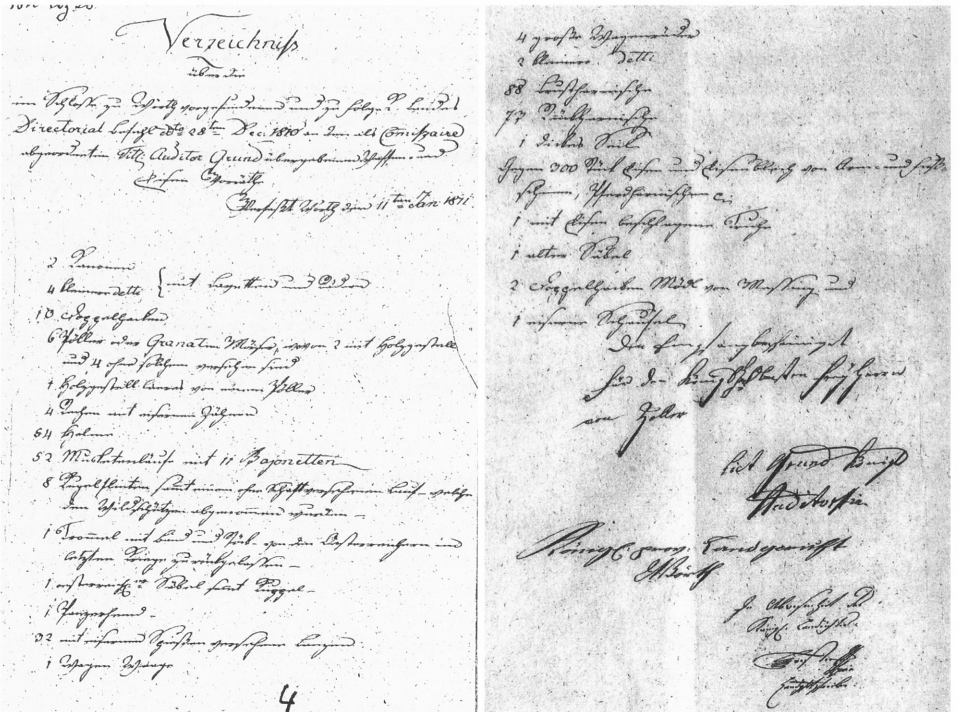 Verzeichniß
über die
im Schlosse zu Wörth vorgefundenen und zu folge K. Landes
Directorial Befehl dto 28ten Dec. 1810 an den als Comißaire
abgeordneten Titl. Auditor Grund übergebenen Waffen- und
Eisen Geräthe
Verfaßt Wörth den 11ten Jan 1811
2 Kanonen
4 kleinere detti } mit Lavetten und Rädern
10 Doppelhacken
6 Pöller oder Granaten Mörser, wovon 2 mit Holzgestell
und 4 ohne solchem versehen sind
1 Holzgestell leeres von einem Pöller
4 Rechen mit eisernen Zähnen
54 Helme
52 Musketenläufe mit 11 Bajonetten
8 Kugelflinten samt einem ohne Schaft versehenen Lauf – welche
den Wildschützen abgenommen wurden –
1 Trommel mit Band und Stück von den Oesterreichern im
letzten Kriege zurückgelassen –
1 oesterreich. Säbel samt Kuppel –
1 Panzerhemd –
32 mit eisernen Spießen versehene Lanzen
1 Wagen Waage
4
4 große Wagenräder
2 kleinere detti
88 Brustharnische
77 Rückharnische
1 dickes Seil
Gegen 300 Stück Eisen und Eisenblech von Arm- und Fuß-
schienen, Pferdharnischen
1 mit Eisen beschlagene Truhe
1 alter Säbel
2 Doppelhacken Mödl von Messing und
1 eiserne Schaufel
den Empfang bescheiniget
für den Königl. Obersten Freyherrn
von Zoller
Lict Grund Königl
Auditor
Königl. prov. Landgericht
Wörth
In Abwesenheit des
Königl. Landrichters